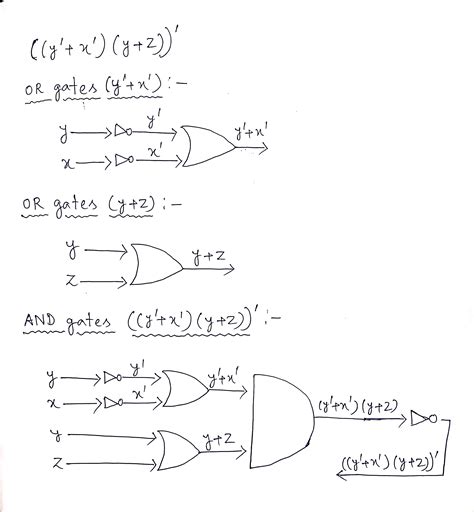 ((y'+x')(y+z))'
OR gates (y'+x') :-
y y'
x x' y'+x'
OR gates (y+z) :-
y
z y+z
AND gates ((y'+x')(y+z))' :-
y y' y'+x'
x x'
(y'+x')(y+z)
y
z y+z
((y'+x')(y+z))'